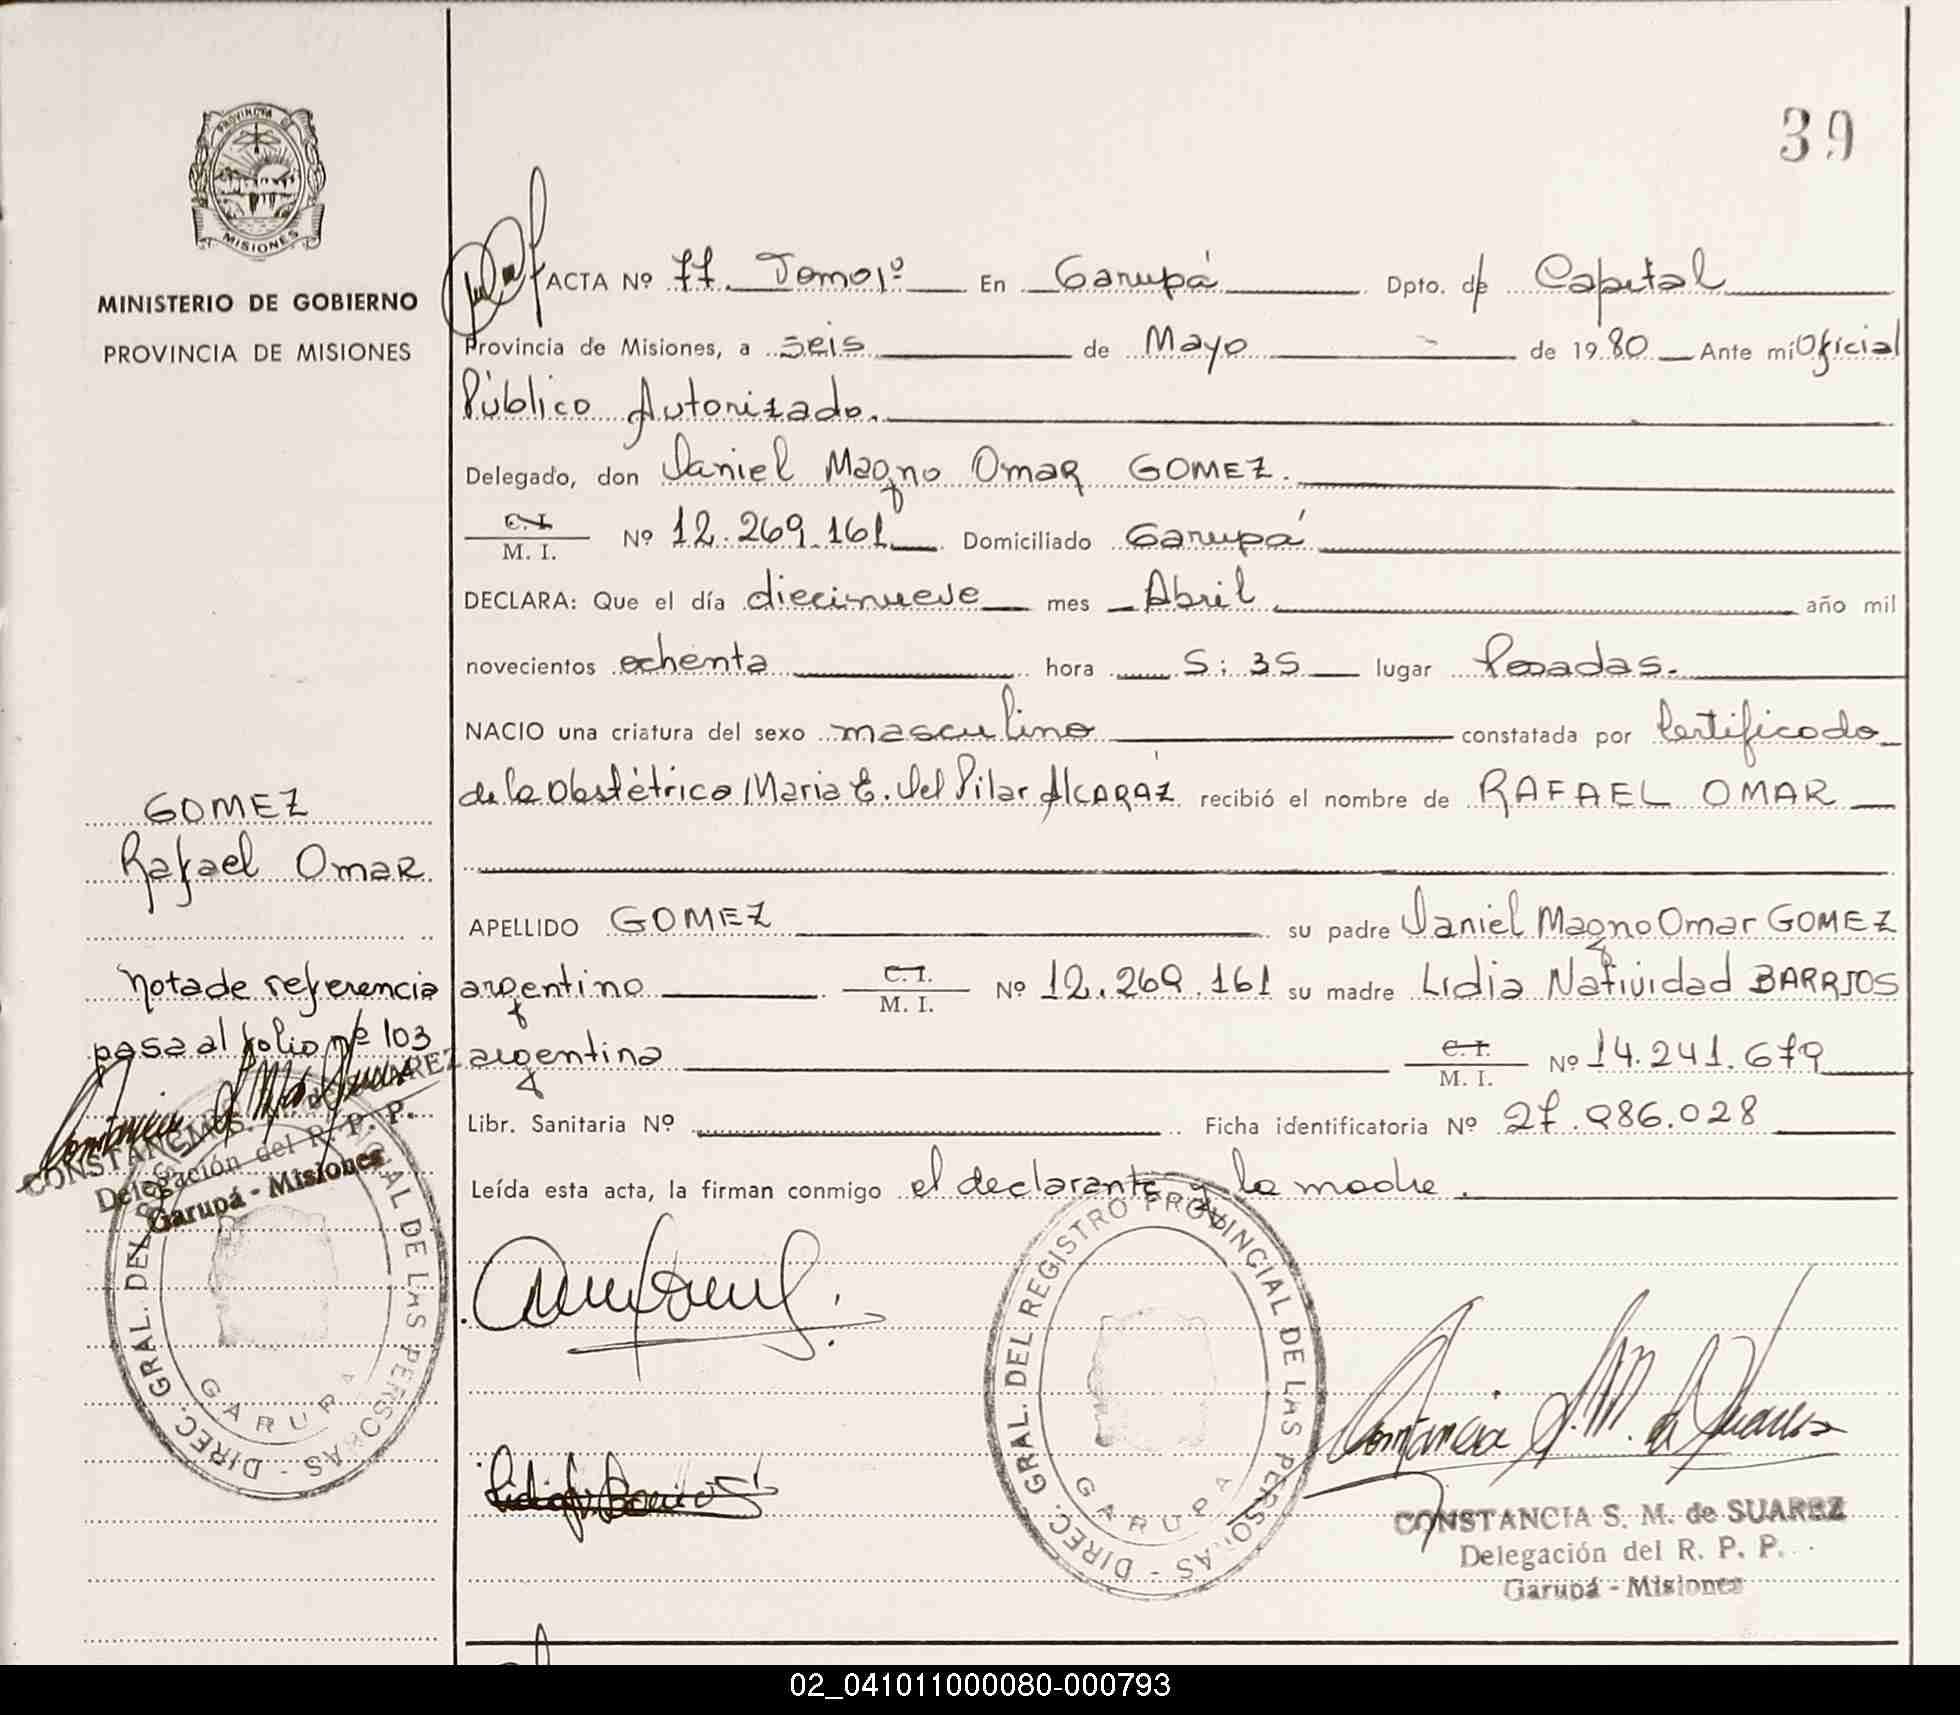 39
PROVINCIA DE
MISIONES
MINISTERIO DE GOBIERNO
PROVINCIA DE MISIONES
ACTA Nº 77. Tomo 1º En Garupá Dpto. de Capital
Provincia de Misiones, a seis de Mayo de 1980 Ante mi Oficial
Público Autorizado.
Delegado, don Daniel Magno Omar GOMEZ.
C. I.
M. I. Nº 12.269.161 Domiciliado Garupá
DECLARA: Que el día diecinueve mes Abril año mil
novecientos ochenta hora 5:35 lugar Posadas.
NACIO una criatura del sexo masculino constatada por Certificado
de la Obstétrica Maria E. Del Pilar AlCARAZ recibió el nombre de RAFAEL OMAR
APELLIDO GOMEZ su padre Daniel Magno Omar GOMEZ
argentino C. I. M. I. Nº 12.269.161 su madre Lidia Natividad BARRIOS
argentina C. I. M. I. Nº 14.241.679
Libr. Sanitaria Nº Ficha identificatoria Nº 27.986.028
Leída esta acta, la firman conmigo el declarante y la madre.
GOMEZ
Rafael Omar
Nota de referencia
pasa al folio nº 103
Constancia S. M. de Suarez
CONSTANCIA S. M. de SUAREZ
Delegación del R. P. P.
Garupá - Misiones
DIREC. GRAL. DEL REGISTRO PROVINCIAL DE LAS PERSONAS -
GARUPA
DIREC. GRAL. DEL REGISTRO PROVINCIAL DE LAS PERSONAS -
GARUPA
Constancia S. M. de Suarez
CONSTANCIA S. M. de SUAREZ
Delegación del R. P. P.
Garupá - Misiones
02_041011000080-000793